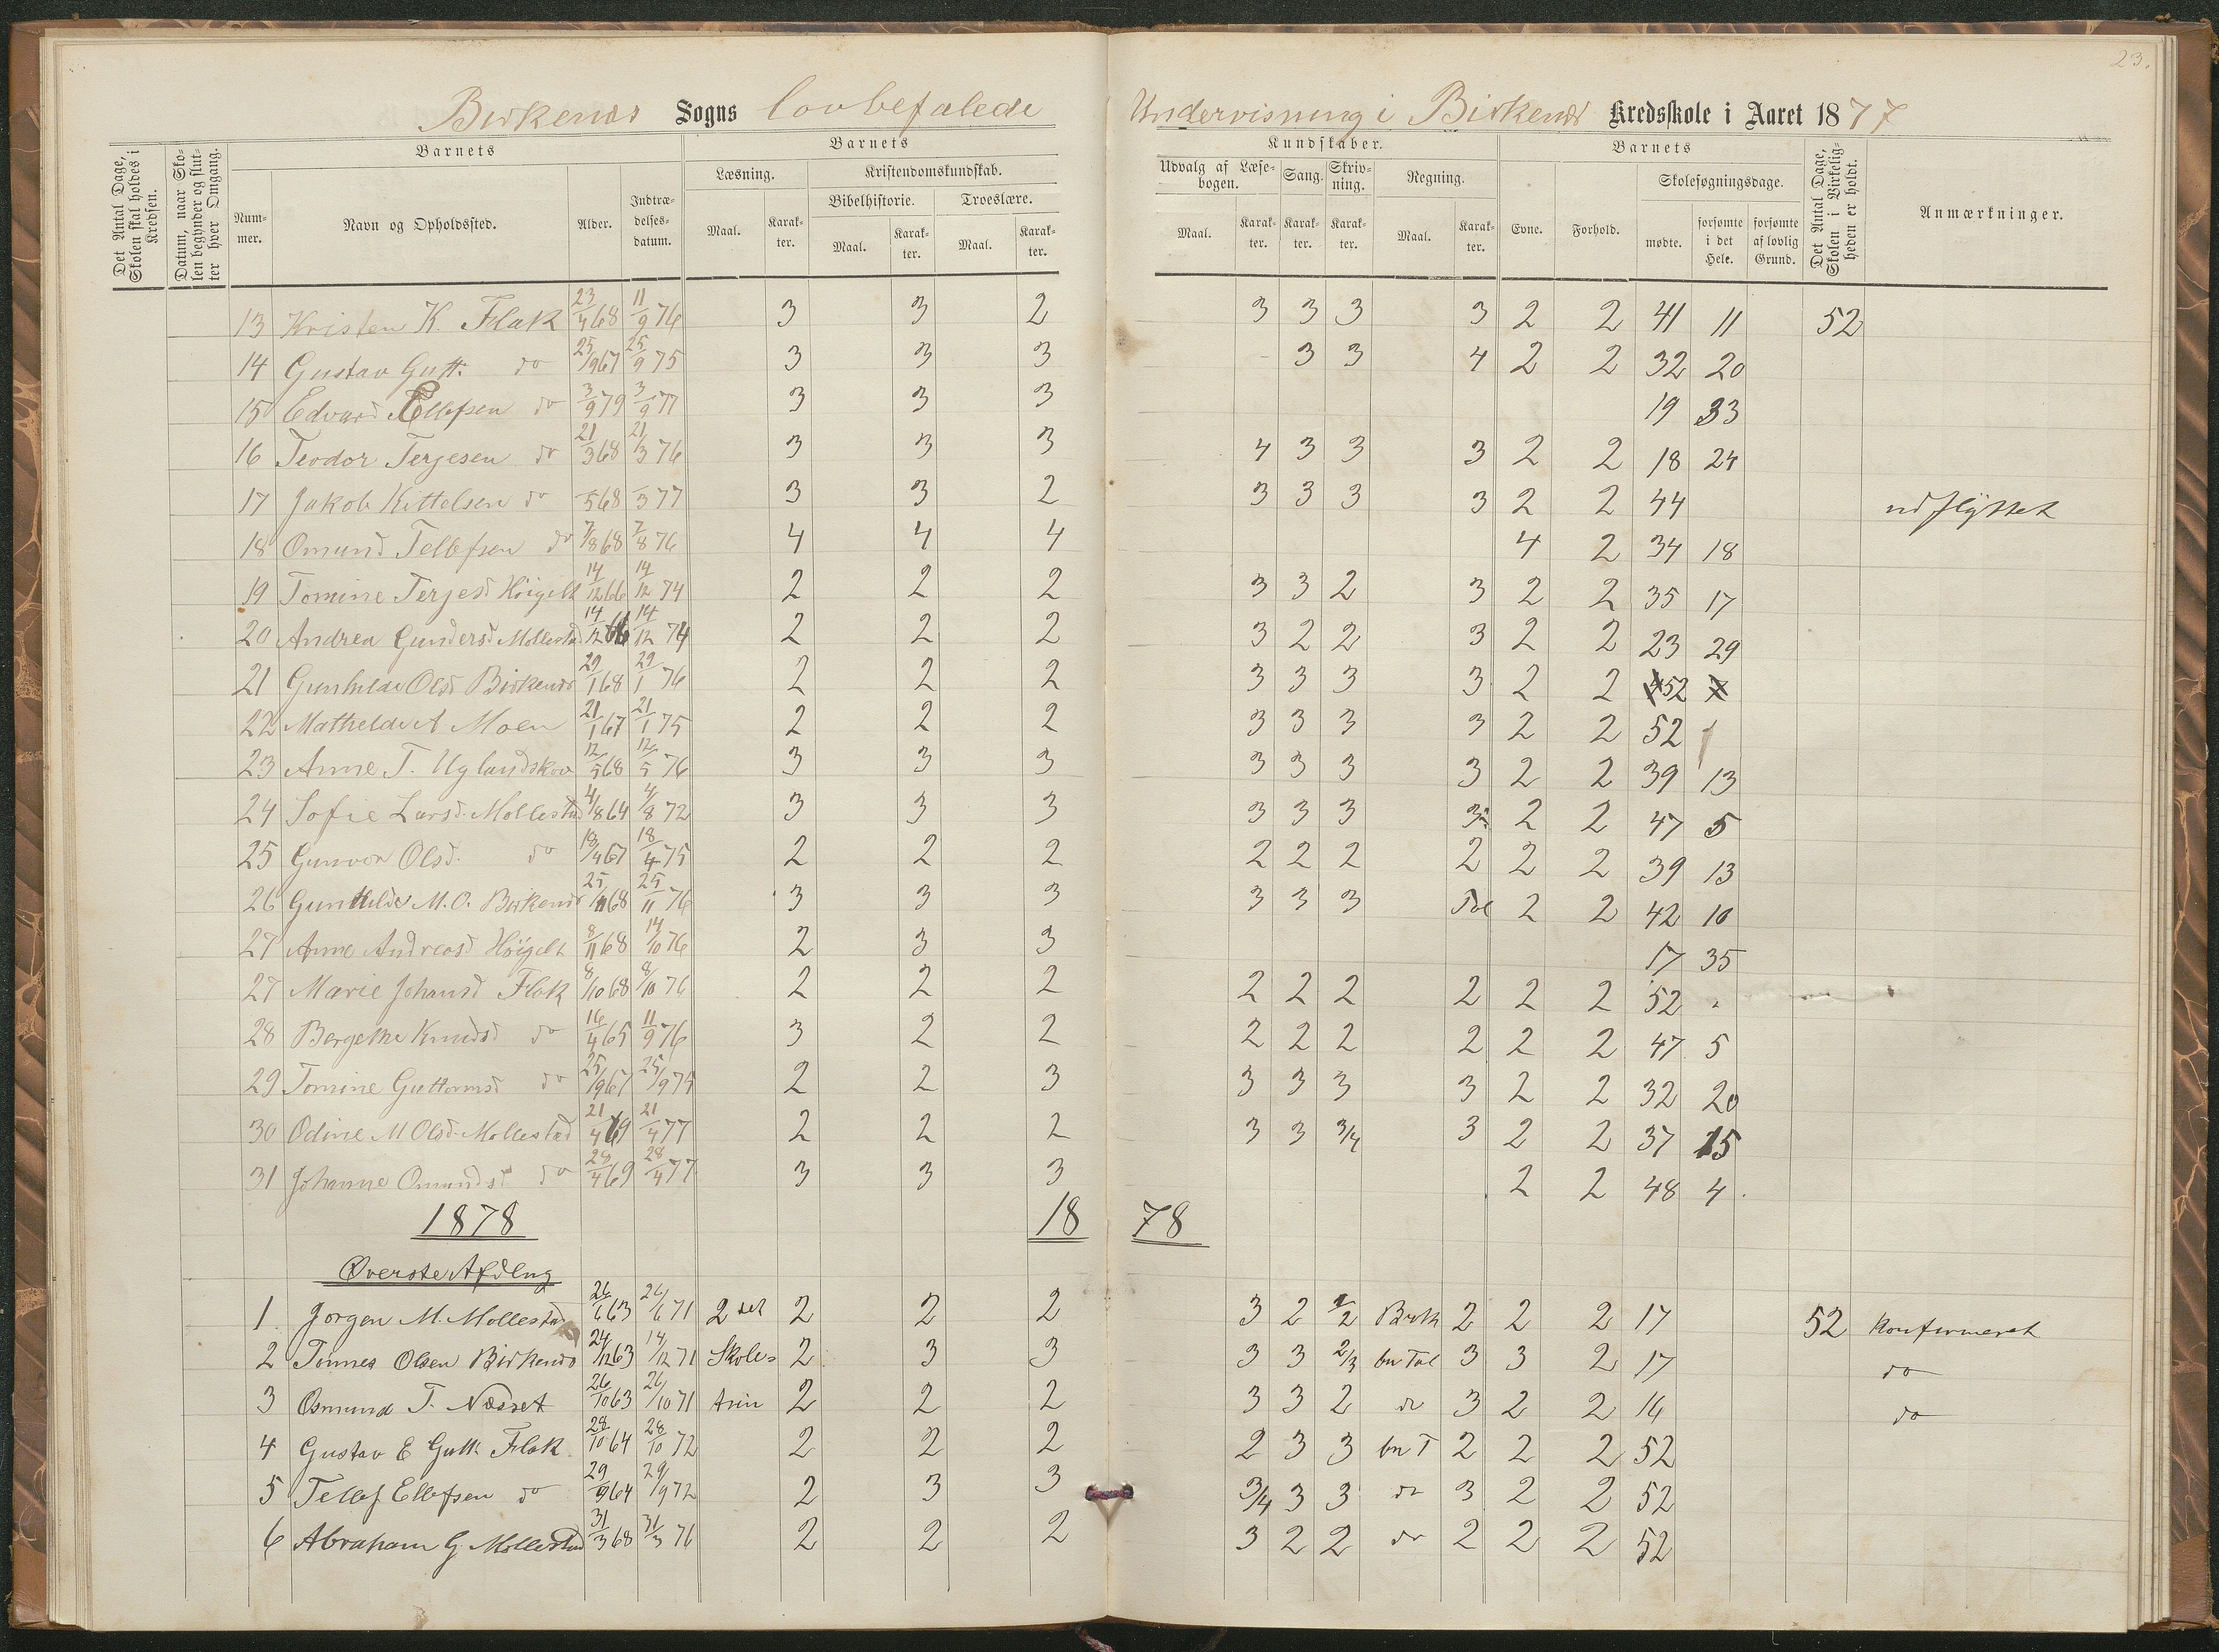 23.
Birkenæs Sogns lovbefalede Undervisning i Birkenæs Kredsskole i Aaret 1877
Det Antal Dage, Skolen skal holdes i Kredsen.
Datum, naar Skolen begynder og slutter hver Omgang.
Barnets
Nummer. Navn og Opholdssted. Alder. Indtrædelsesdatum.
Barnets
Læsning. Kristendomskundskab.
Bibelhistorie. Troeslære.
Maal. Karakter. Maal. Karakter. Maal. Karakter.
Kundskaber.
Udvalg af Læsebogen. Sang. Skrivning. Regning.
Maal. Karakter. Karakter. Karakter. Maal. Karakter.
Barnets
Evne. Forhold. Skolesøgningsdage.
mødte. forsømte i det Hele. forsømte af lovlig Grund.
Det Antal Dage, Skolen i Virkeligheden er holdt.
Anmærkninger.
13 Kristen K. Flak 23/4 68 11/9 76 3 3 2 3 3 3 3 2 2 41 11 52
14 Gustav Gutt. do 25/9 67 25/9 75 3 3 3 3 3 4 2 2 32 20
15 Edvard Ellefsen do 3/9 79 3/9 77 3 3 3 19 33
16 Teodor Terjesen do 21/3 68 21/3 76 3 3 3 4 3 3 3 2 2 18 24
17 Jakob Kittelsen do 5 68 3 77 3 3 2 3 3 3 3 2 2 44 udflyttet
18 Omund Tellefsen do 7/8 68 7/8 76 4 4 4 4 2 34 18
19 Tomine Terjesd Höigilt 14/12 66 14/12 74 2 2 2 3 3 2 3 2 2 35 17
20 Andrea Gundersd Mollestad 14/12 66 14/12 74 2 2 2 3 2 2 3 2 2 23 29
21 Gunhilde Olsd Birkenæs 29/1 68 29/1 76 2 2 2 3 3 3 3 2 2 52
22 Mathilde A Moen 21/1 67 21/1 75 2 2 2 3 3 3 3 2 2 52
23 Anne T. Uglandskov 12/5 68 12/5 76 3 3 3 3 3 3 3 2 2 39 13
24 Sofie Larsd. Mollestad 4/8 64 4/8 72 3 3 3 3 3 3 3 2 2 47 5
25 Gunvor Olsd. do 18/4 67 18/4 75 2 2 2 2 2 2 2 2 2 39 13
26 Gunhilde M. O. Birkenæs 25/11 68 25/11 76 3 3 3 3 3 3 Tal 2 2 42 10
27 Anne Andreasd Höigilt 8/11 68 14/10 76 2 3 3 17 35
27 Marie Johansd Flak 8/10 68 8/10 76 2 2 2 2 2 2 2 2 2 52
28 Bergethe Knudsd do 16/4 65 11/9 76 3 2 2 2 2 2 2 2 2 47 5
29 Tomine Guttormsd do 25/9 67 25/9 75 2 2 3 3 3 3 3 2 2 32 20
30 Odine M Olsd. Mollestad 21/4 69 21/4 77 2 2 2 3 3 3/4 3 2 2 37 15
31 Johanne Omundsd do 28/4 69 28/4 77 3 3 3 2 2 48 4
1878 1878
Øverste Afdlng
1 Jørgen M. Mollestad 26/6 63 26/6 71 2det 2 2 2 3 2 1/2 Brøk 2 2 2 17 52 Konfirmeret
2 Tønnes Olsen Birkenæs 24/12 63 14/12 71 Skole= 2 3 3 3 3 2/3 bn Tal 3 3 2 17 do
3 Osmund T. Næsset 26/10 63 26/10 71 trin 2 2 2 3 3 2 do 3 2 2 16 do
4 Gustav E Gutt. Flak 28/10 64 28/10 72 2 2 2 2 3 3 bn T 2 2 2 52
5 Tellef Ellefsen do 29/9 64 29/9 72 2 3 3 3/4 3 3 do 3 2 2 52
6 Abraham G Mollestad 31/3 68 31/3 76 2 2 2 3 2 2 do 2 2 2 52